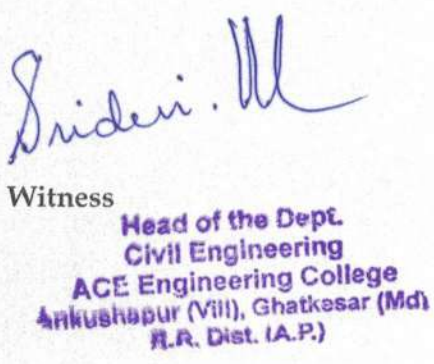 Sridevi. M
Witness
Head of the Dept.
Civil Engineering
ACE Engineering College
Ankushapur (Vill), Ghatkesar (Md)
R.R. Dist. (A.P.)